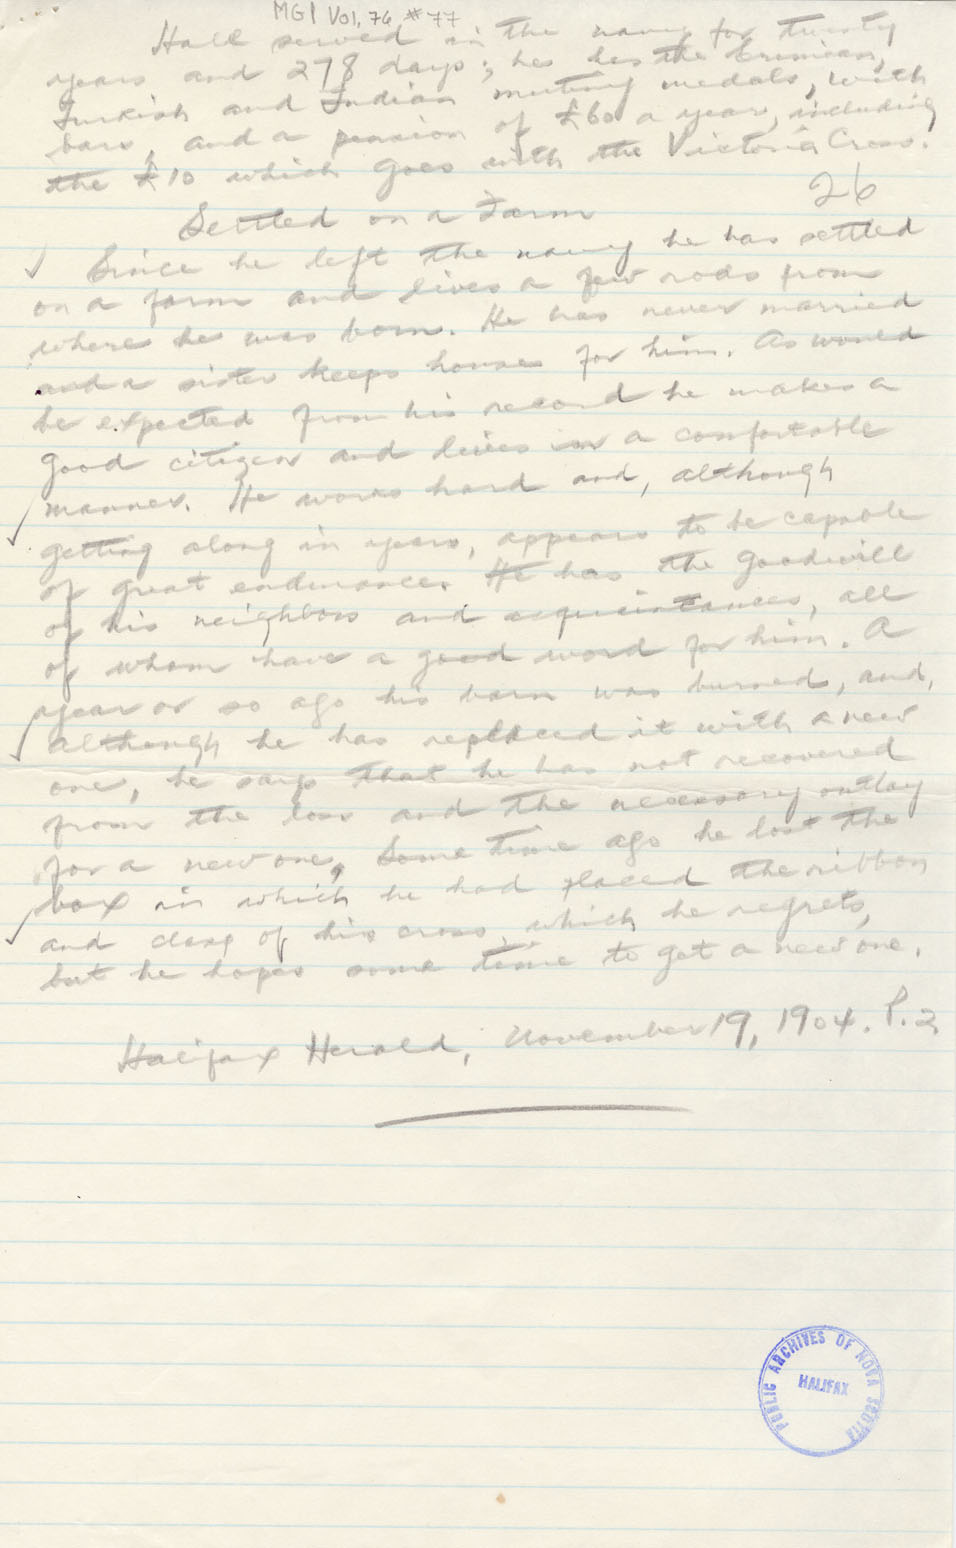 MG1 Vol. 76 #77
Hall served in the navy for twenty
years and 278 days; he has the Crimean,
Turkish and Indian mutiny medals, with
bars, and a pension of £60 a year, including
the £10 which goes with the Victoria Cross.
26
Settled on a Farm
Since he left the navy he has settled
on a farm and lives a few rods from
where he was born. He has never married
and a sister keeps house for him. As would
be expected from his record he makes a
good citizen and lives in a comfortable
manner. He works hard and, although
getting along in years, appears to be capable
of great endurance. He has the goodwill
of his neighbors and acquaintances, all
of whom have a good word for him. A
year or so ago his barn was burned, and,
although he has replaced it with a new
one, he says that he has not recovered
from the loss and the necessary outlay
for a new one. Some time ago he lost the
box in which he had placed the ribbon
and clasp of his cross, which he regrets,
but he hopes some time to get a new one.
Halifax Herald, November 19, 1904. P. 2.
PUBLIC ARCHIVES OF NOVA SCOTIA
HALIFAX